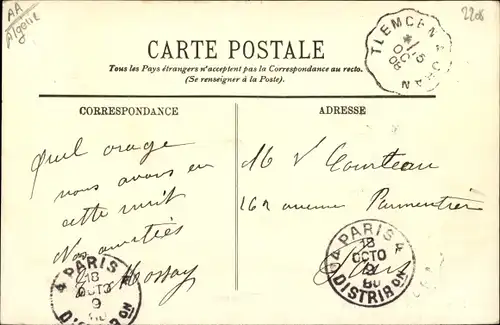 AA
Algerie
2206
TLEMCEN A ORAN
15
OCT
08
CARTE POSTALE
Tous les Pays étrangers n'acceptent pas la Correspondance au recto.
(Se renseigner à la Poste).
CORRESPONDANCE
ADRESSE
Quel orage
nous avons eu
cette nuit
Nos amitiés
M V Courteau
162 avenue Parmentier
Paris
4 PARIS 4
18
OCTO
DISTRIBON
4 PARIS
18
OCTO
9
DISTRIBON